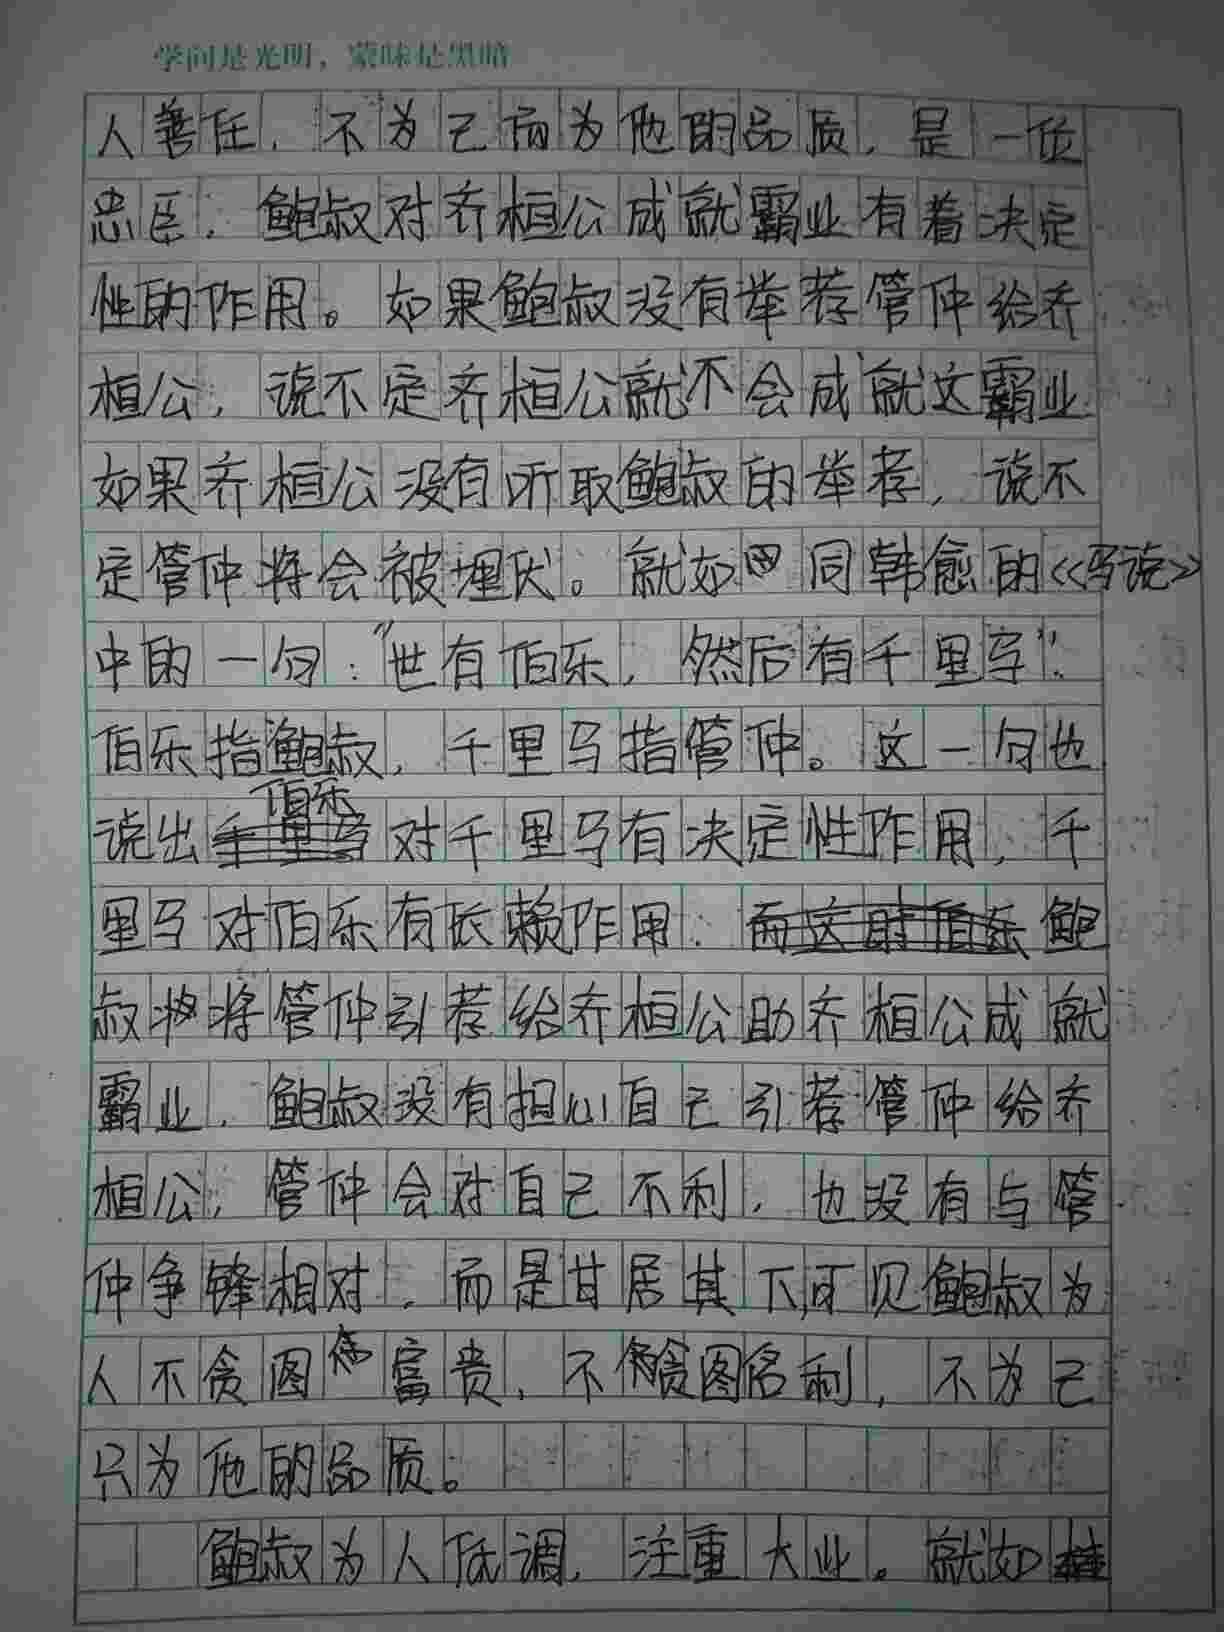 学问是光明，蒙昧是黑暗
人善任，不为己而为他的品质，是一位
忠臣，鲍叔对齐桓公成就霸业有着决定
性的作用。如果鲍叔没有举荐管仲给齐
桓公，说不定齐桓公就不会成就这霸业
如果齐桓公没有听取鲍叔的举荐，说不
定管仲将会被埋伏。就如同韩愈的《马说》
中的一句："世有伯乐，然后有千里马"．
伯乐指鲍叔，千里马指管仲。这一句也
说出伯乐对千里马有决定性作用，千
里马对伯乐有依赖作用．鲍
叔将管仲引荐给齐桓公助齐桓公成就
霸业．鲍叔没有担心自己引荐管仲给齐
桓公，管仲会对自己不利，也没有与管
仲争锋相对，而是甘居其下，可见鲍叔为
人不贪图富贵，不贪图名利，不为己
只为他的品质。
鲍叔为人低调，注重大业。就如